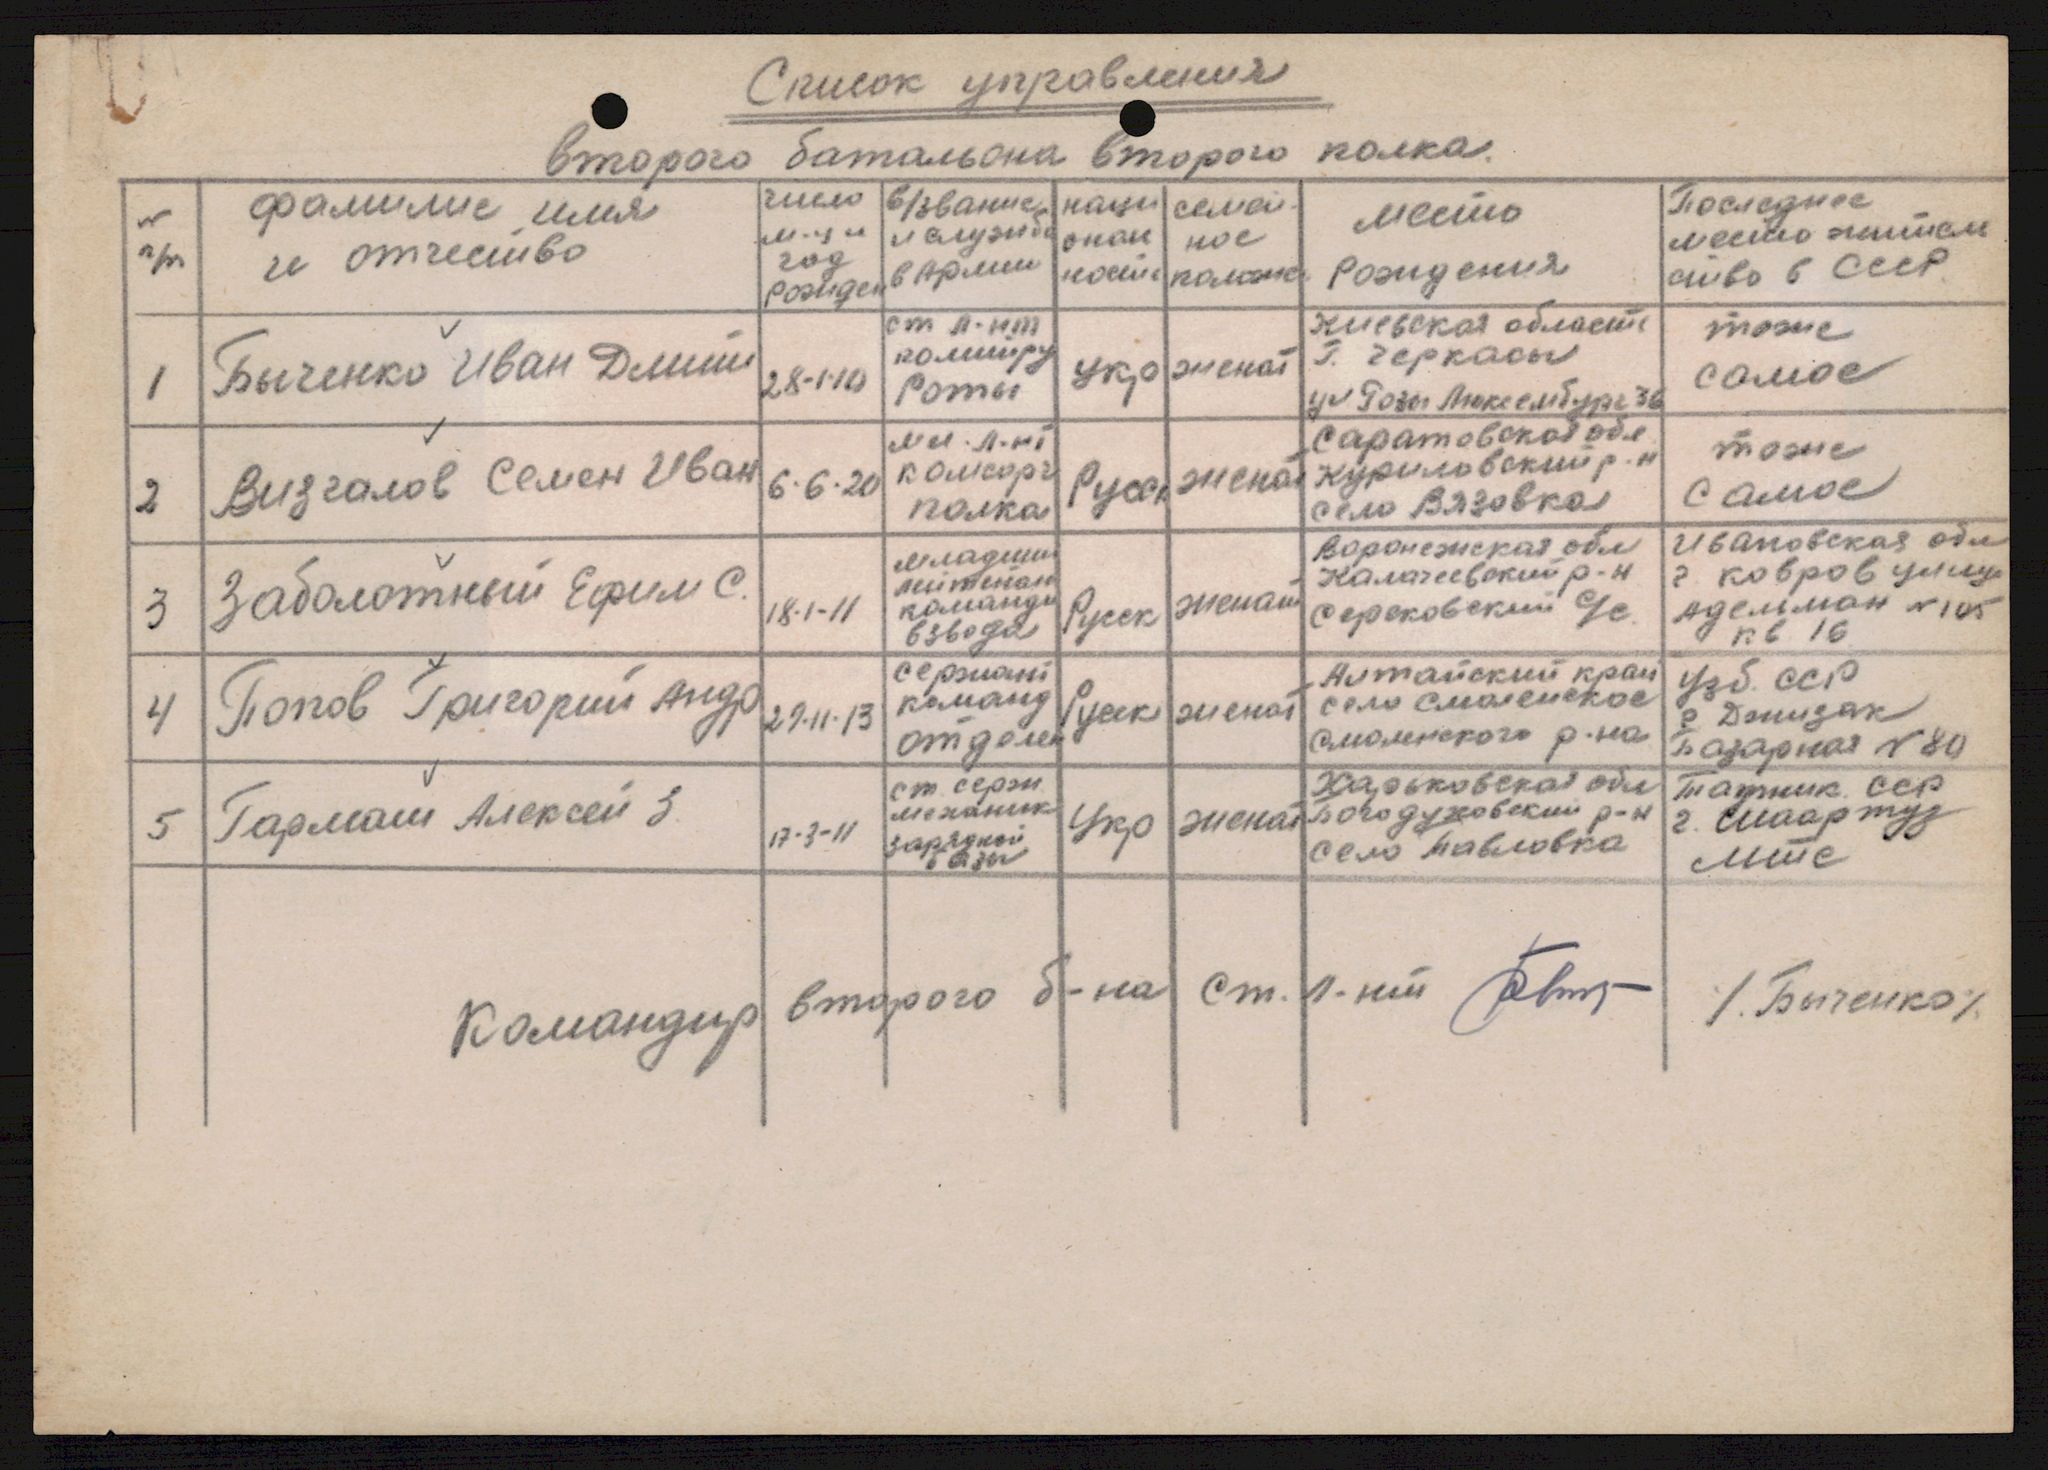 Список управления
второго батальона второго полка.
№ п/п
фамилие имя и отчество
число м-ц и год рожден
в/звание и служба в Армии
наци онал ность
семей- ное положе
место Рождения
Последнее место жител ство в СССР
1 Быченко Иван Дмит 28-1-10 ст л-нт политру Роты Укр женат Киевская область Г. Черкасы ул Розы Люксембург 36 тоже самое
2 Визгалов Семен Иван 6-6-20 мл. л-нт комсорг полка Русск женат Саратовская обл Куриловский р-н село Вязовка тоже самое
3 Заболотный Ефим С. 18-1-11 младши лйтенан команди взвода Русск женат Воронежская обл Калачеевский р-н Серековский С/с. Ивановская обл г. Ковров улиц Адельман № 105 кв 16
4 Попов Григорий Андр 27-11-13 сержант команд отделен Русск женат Алтайский край село Смоленское Смоленского р-на Узб. ССР г Джизак Базарная № 80
5 Гармаш Алексей З. 17-3-11 ст. серж. механик зарядной базы Укр женат Харьковская обл Богодуховский р-н село Павловка Таджик. ССР г. Шаартуз МТС
Командир второго б-на ст. л-нт /. Быченко/.